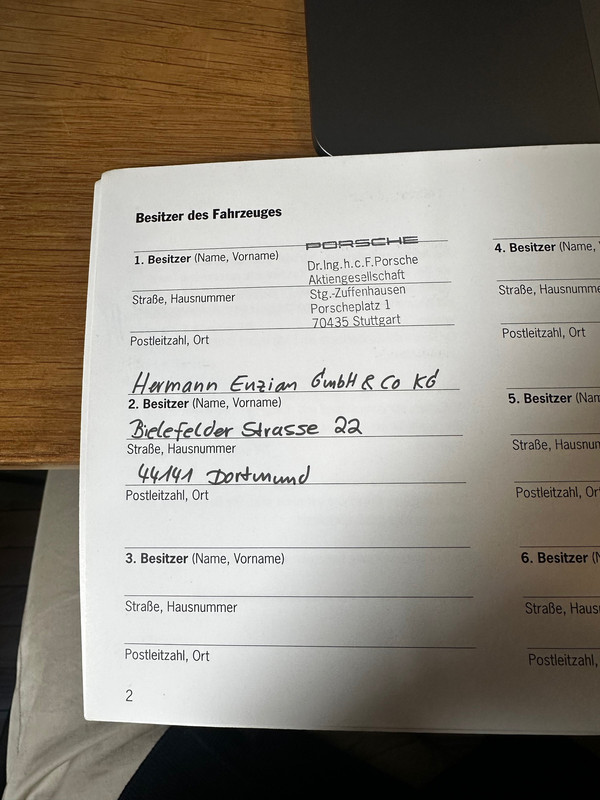 Besitzer des Fahrzeuges
PORSCHE
1. Besitzer (Name, Vorname)
Dr.Ing.h.c.F.Porsche
Aktiengesellschaft
Straße, Hausnummer
Stg.-Zuffenhausen
Porscheplatz 1
70435 Stuttgart
Postleitzahl, Ort
Hermann Enzian GmbH & Co KG
2. Besitzer (Name, Vorname)
Bielefelder Strasse 22
Straße, Hausnummer
44141 Dortmund
Postleitzahl, Ort
3. Besitzer (Name, Vorname)
Straße, Hausnummer
Postleitzahl, Ort
2
4. Besitzer (Name,
Straße, Hausnumme
Postleitzahl, Ort
5. Besitzer (Nam
Straße, Hausnum
Postleitzahl, Ort
6. Besitzer (N
Straße, Haus
Postleitzahl,